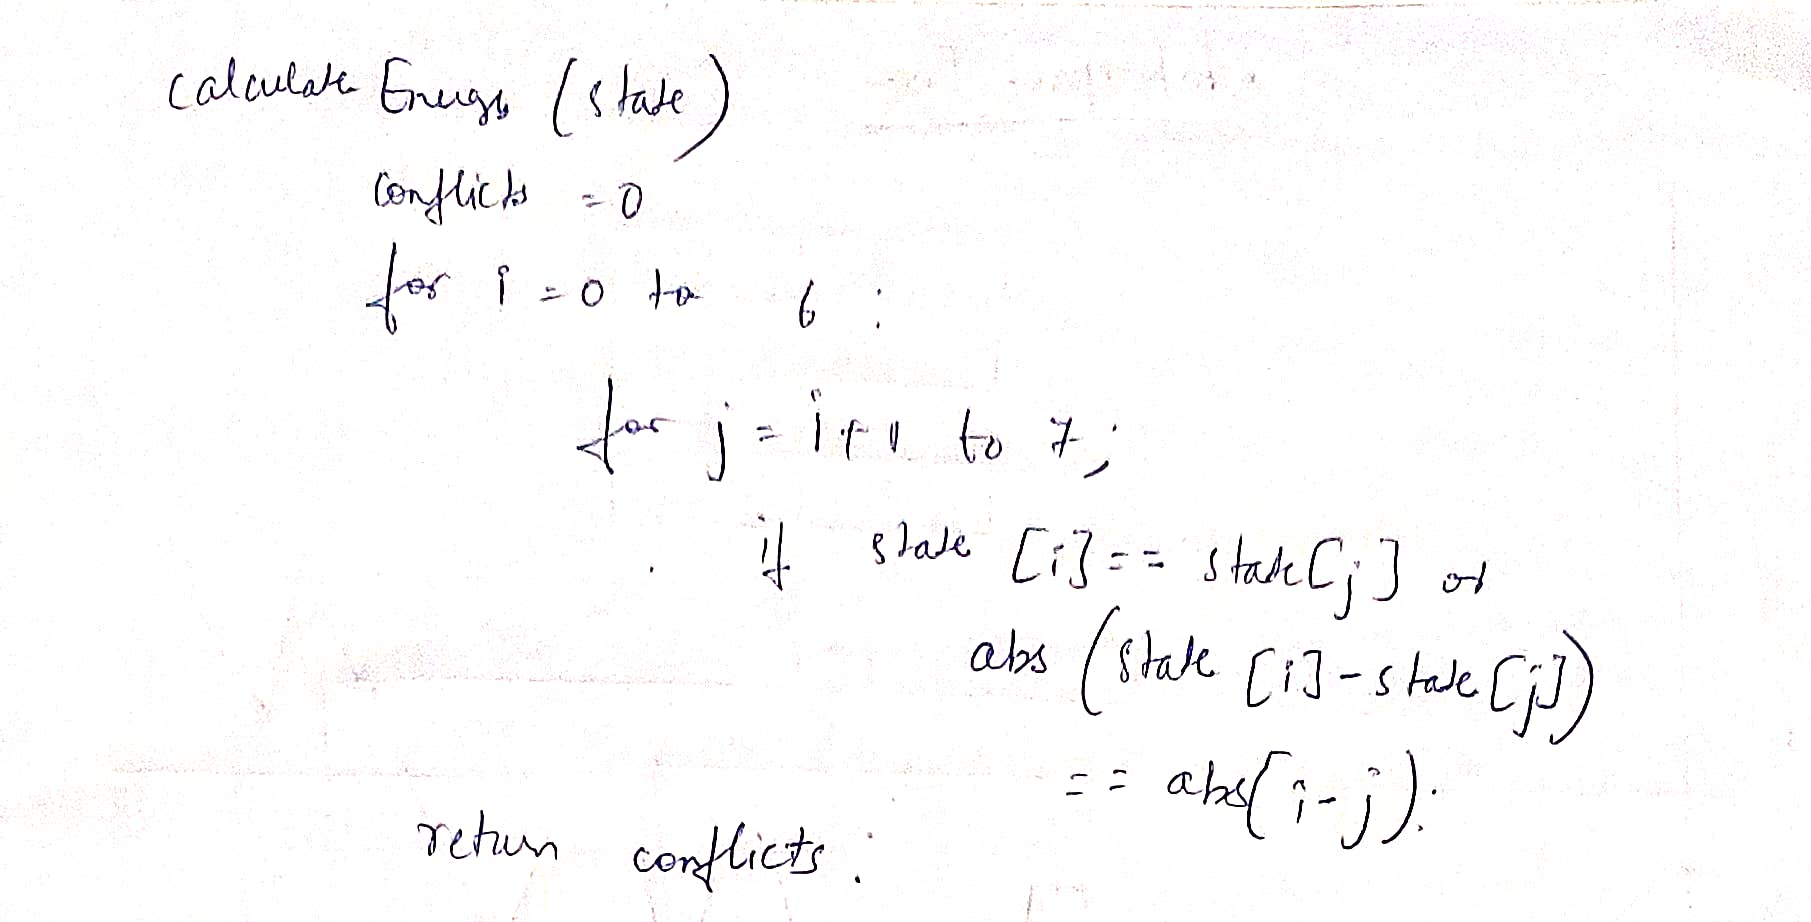 calculate Energy (state)
conflicts = 0
for i = 0 to 6 :
for j = i+1 to 7;
if state [i] == state[j] or
abs (state [i] - state [j])
== abs(i-j):
return conflicts: